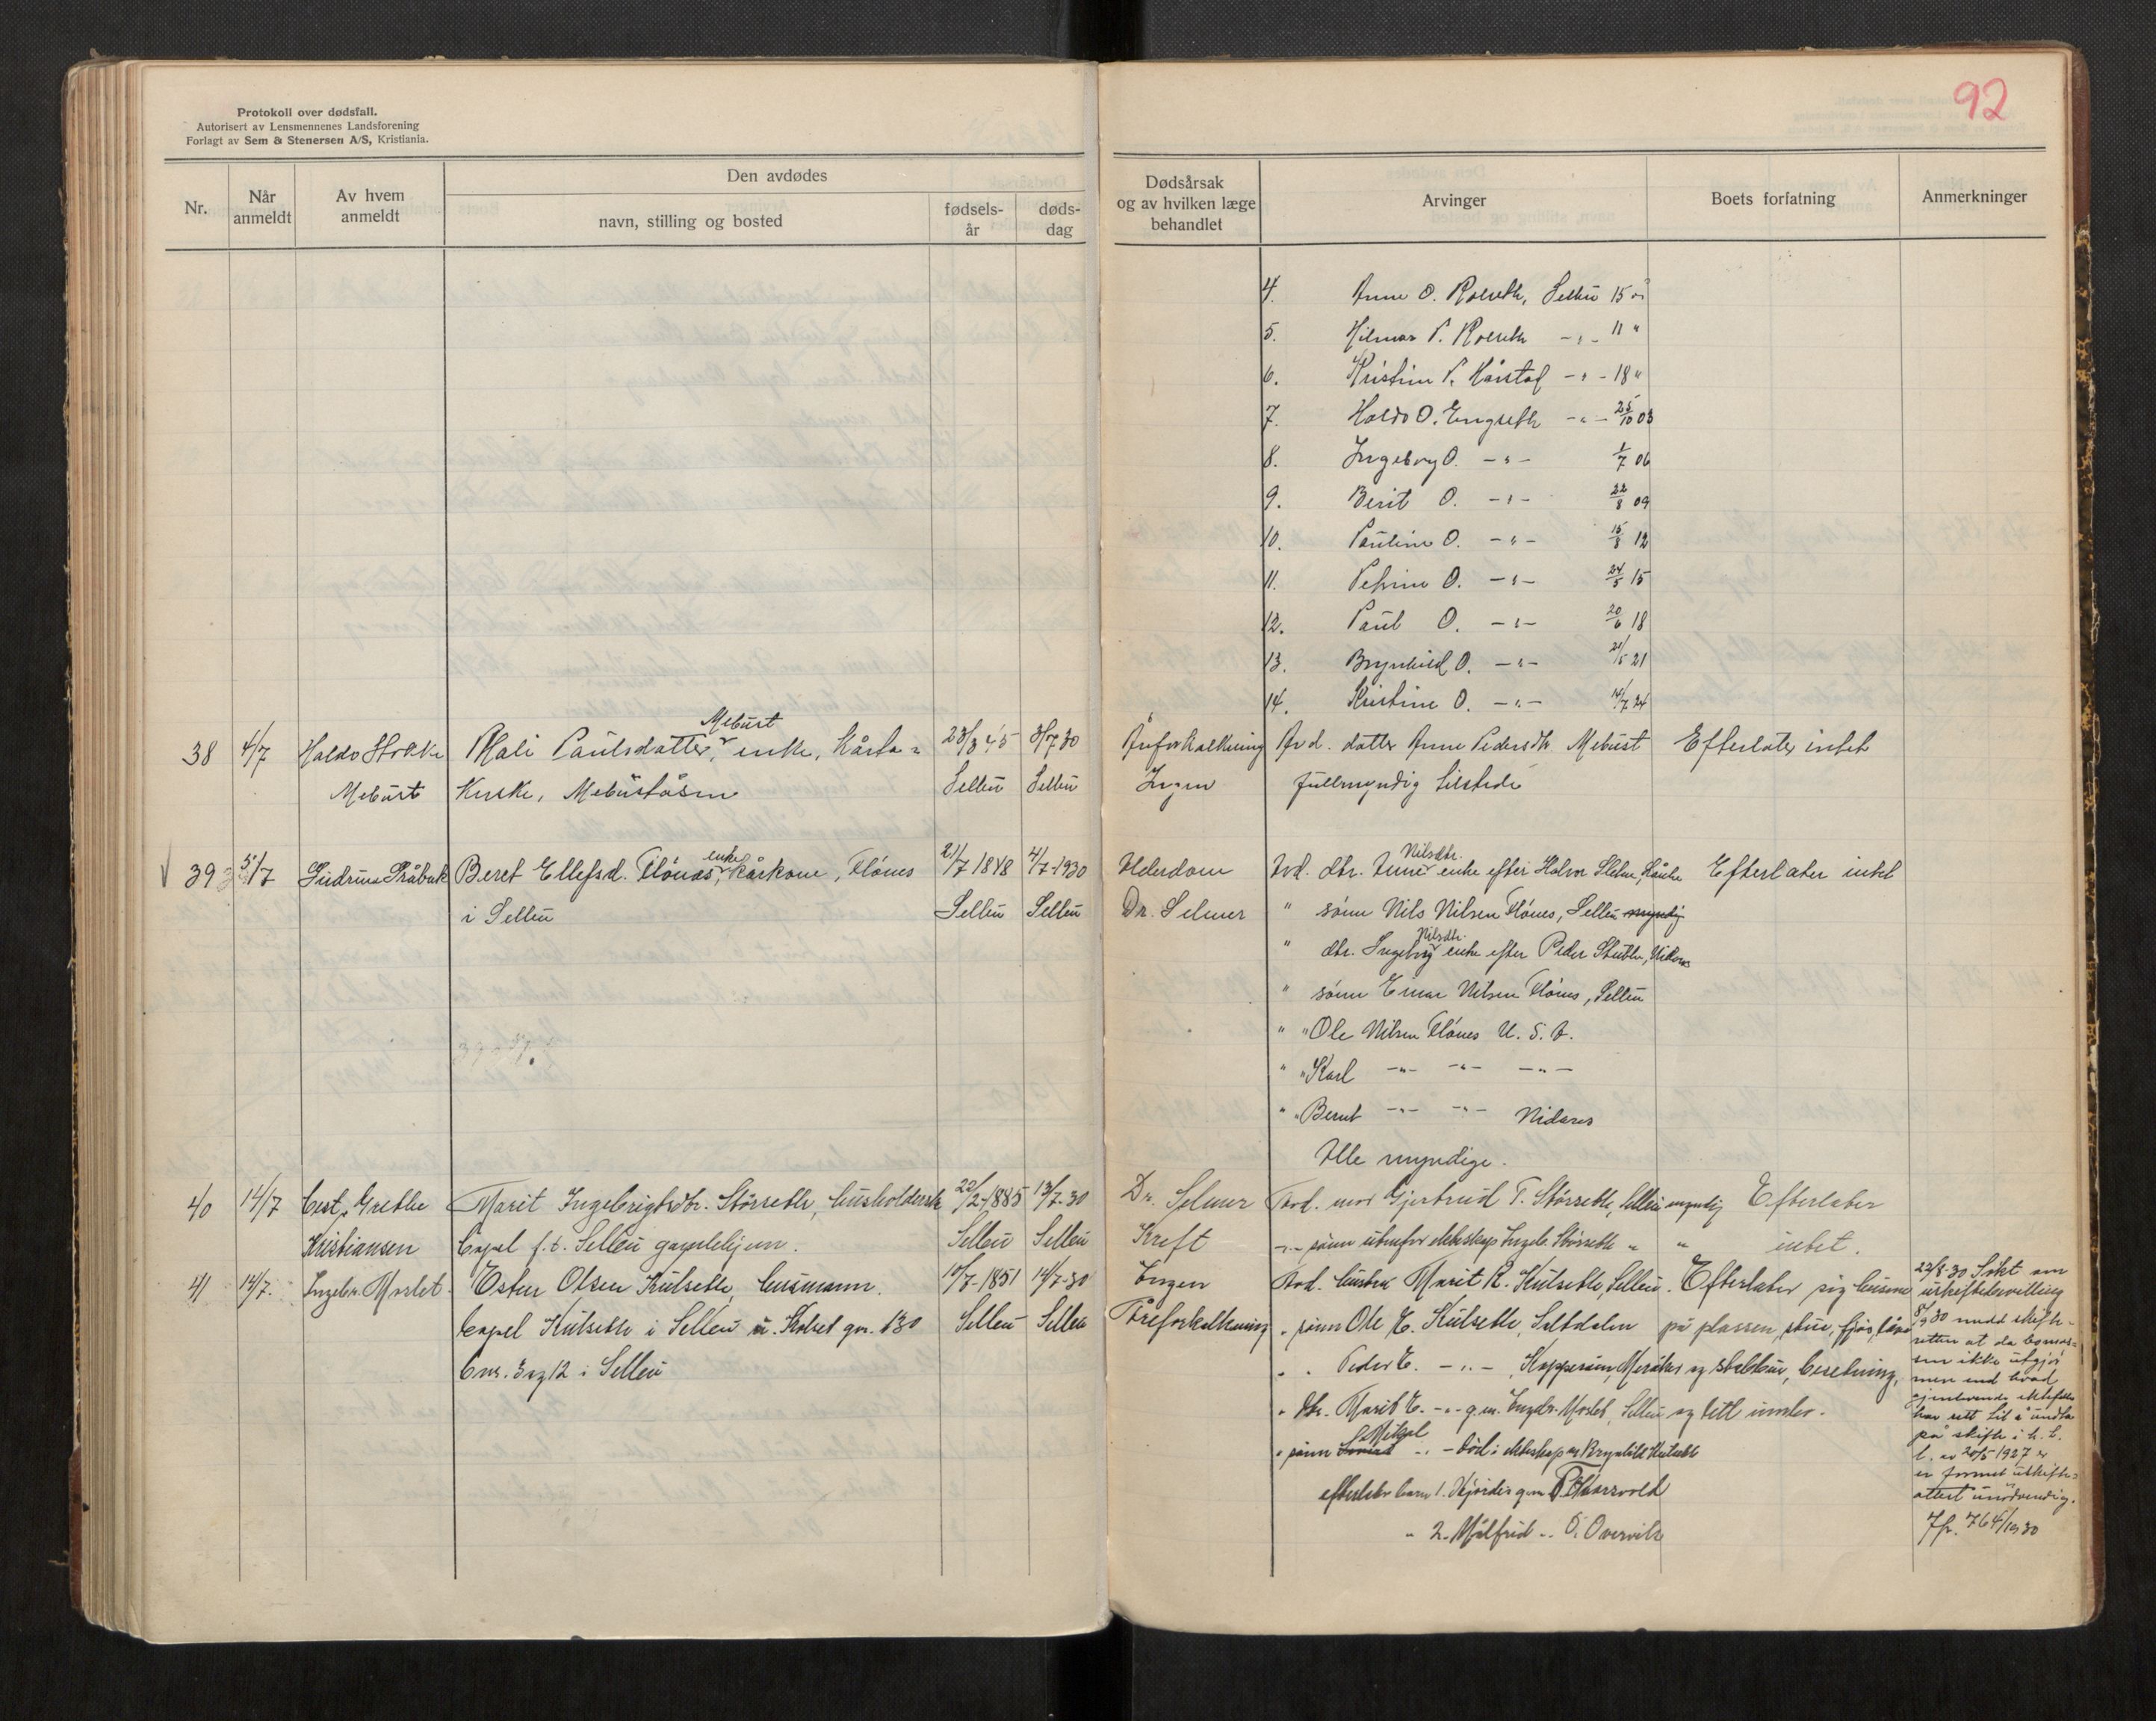 92
Protokoll over dødsfall.
Autorisert av Lensmennenes Landsforening
Forlagt av Sem & Stenersen A/S, Kristiania.
Nr.
Når anmeldt
Av hvem anmeldt
Den avdødes
navn, stilling og bosted
fødsels-år
døds-dag
Dødsårsak og av hvilken læge behandlet
Arvinger
Boets forfatning
Anmerkninger
4. Anne O. Rolseth, Selbu 15 år
5. Hilmar P. Rolseth -"- 11 "
6. Kristine P. Hårstad -"- 18 "
7. Haldo O. Engseth -"- 25/10 03
8. Ingeborg O. -"- 1/7 06
9. Berit O. -"- 22/8 09
10. Pauline O. -"- 15/8 12
11. Petrine O. -"- 24/5 15
12. Paul O. -"- 20/6 18
13. Brynhild O. -"- 21/5 21
14. Kristine O. -"- 14/7 24
38 4/7 Haldo Stokke Mali Paulsdatter, Mebust enke, kårta- 23/3 45 3/7 30 Åreforkalkning Avd. datter Anne Pedersdtr Mebust Efterlater intet
Mebust kerske, Mebuståsen Selbu Selbu Ingen fullmyndig tilstede
39 5/7 Gudrun Pråbak Beret Ellefsd. Flønes, enke kårkone, Flønes 21/7 1848 4/7-1930 Alderdom Avd. dtr. Anne Nilsdtr. enke efter Halvor Sletne, Efterlater intet
i Selbu Selbu Selbu Dr. Selmer " sønn Nils Nilsen Flønes, Selbu myndig
" dtr. Ingeborg Nilsdtr. enke efter Peder Stubbe, Nidaros
" sønn Einar Nilsen Flønes, Selbu
" " Ole Nilsen Flønes U. S. A.
" " Karl -"- -"- -"-
" " Bernt -"- -"- Nidaros
Alle myndige.
40 14/7 Best. Grethe Marit Ingebrigtsdtr. Størseth, husholderske 22/2-1885 13/7-30 Dr. Selmer Avd. mor Gjertrud T. Størseth, Selbu myndig Efterlater
Kristiansen bopel f.t. Selbu gamlehjem. Selbu Selbu Kreft -"- sønn utenfor ekteskap Ingebr. Størseth " " intet.
41 14/7. Ingebr. Moslet Esten Olsen Kulseth, husmann. 10/7-1851 14/7-30 Ingen Avd. hustru Marit R. Kulseth, Selbu. Efterlater sig husene
bopel Kulseth i Selbu u. gnr. 130 Selbu Selbu Åreforkalkning " sønn Ole E. Kulseth, Saltdalen på plassen, stue, fjøs, låve
bnr. 3 og 12 i Selbu " " Peder E. -"- , Kopperåen, Meråker og stabbur, besetning,
" dtr. Marit E. -"- g.m. Ingebr. Moslet, Selbu og litt innbo.
" sønn Mikal -"- død i ekteskap m. Brynhild Kulseth
efterlater barn 1. Hjørdis g.m. P. Marsvold
" 2. Målfrid -"- O. Overvik
22/8-30 Søkt om
uskiftebevilling
8/9 30 medd. skifte-
retten at da bomas-
sen ikke utgjør
mer end hvad
gjenlevende ektefelle
har rett til å undta
på skifte i h.t.
l. av 20/5 1927
er formel uskifte-
attest unødvendig.
Jfr. 764/1930